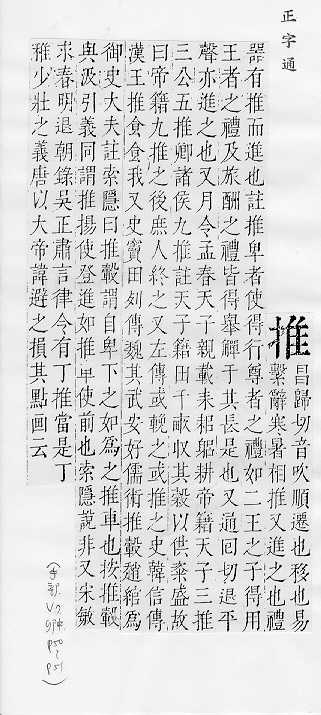 正字通
推
昌歸切音吹順遷也移也易
繫辭寒暑相推又進也禮
器有推而進也註推卑者使得行尊者之禮如二王之子得用
王者之禮及旅酬之禮皆得舉觶于其長是也又通回切退平
聲亦進之也又月令孟春天子親載耒耜躬耕帝籍天子三推
三公五推卿諸侯九推註天子籍田千畝收其穀以供粢盛故
曰帝籍九推之後庶人終之又左傳或輓之或推之史韓信傳
漢王推食食我又史竇田列傳魏其武安好儒術推轂趙綰爲
御史大夫註索隱曰推轂謂自卑下之如爲之推車也按推轂
與汲引義同謂推揚使登進如推車使前也索隱說非又宋敏
求春明退朝錄吳正肅言律令有丁推當是丁
稚少壯之義唐以大帝諱避之損其點畫云
(手部
p50
p51)